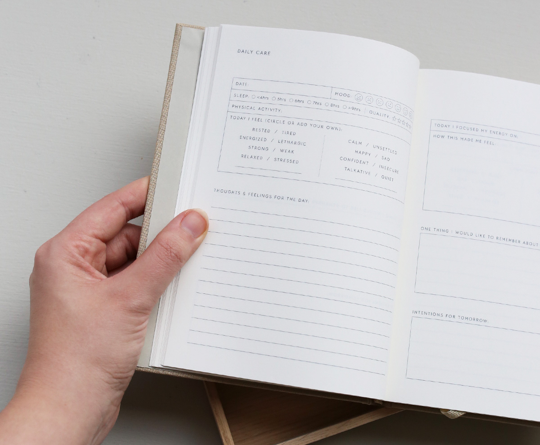 DAILY CARE
DATE: MOOD:
SLEEP: <4Hrs 5Hrs 6Hrs 7Hrs 8Hrs >9Hrs QUALITY:
PHYSICAL ACTIVITY:
TODAY I FEEL (CIRCLE OR ADD YOUR OWN):
RESTED / TIRED
ENERGIZED / LETHARGIC
STRONG / WEAK
RELAXED / STRESSED
CALM / UNSETTLED
HAPPY / SAD
CONFIDENT / INSECURE
TALKATIVE / QUIET
THOUGHTS & FEELINGS FOR THE DAY:
TODAY I FOCUSED MY ENERGY ON:
HOW THIS MADE ME FEEL:
ONE THING I WOULD LIKE TO REMEMBER ABOUT
INTENTIONS FOR TOMORROW: